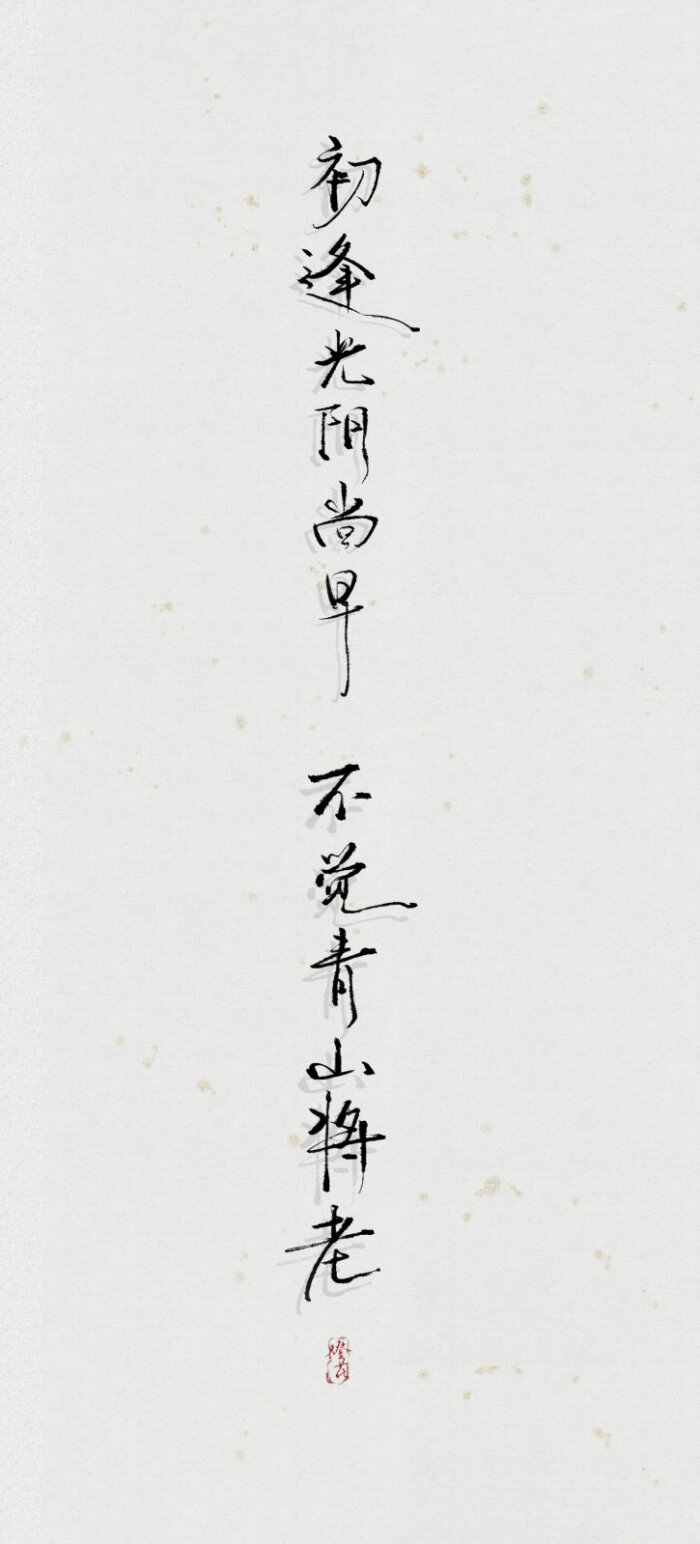 初逢光阴尚早 不觉青山将老